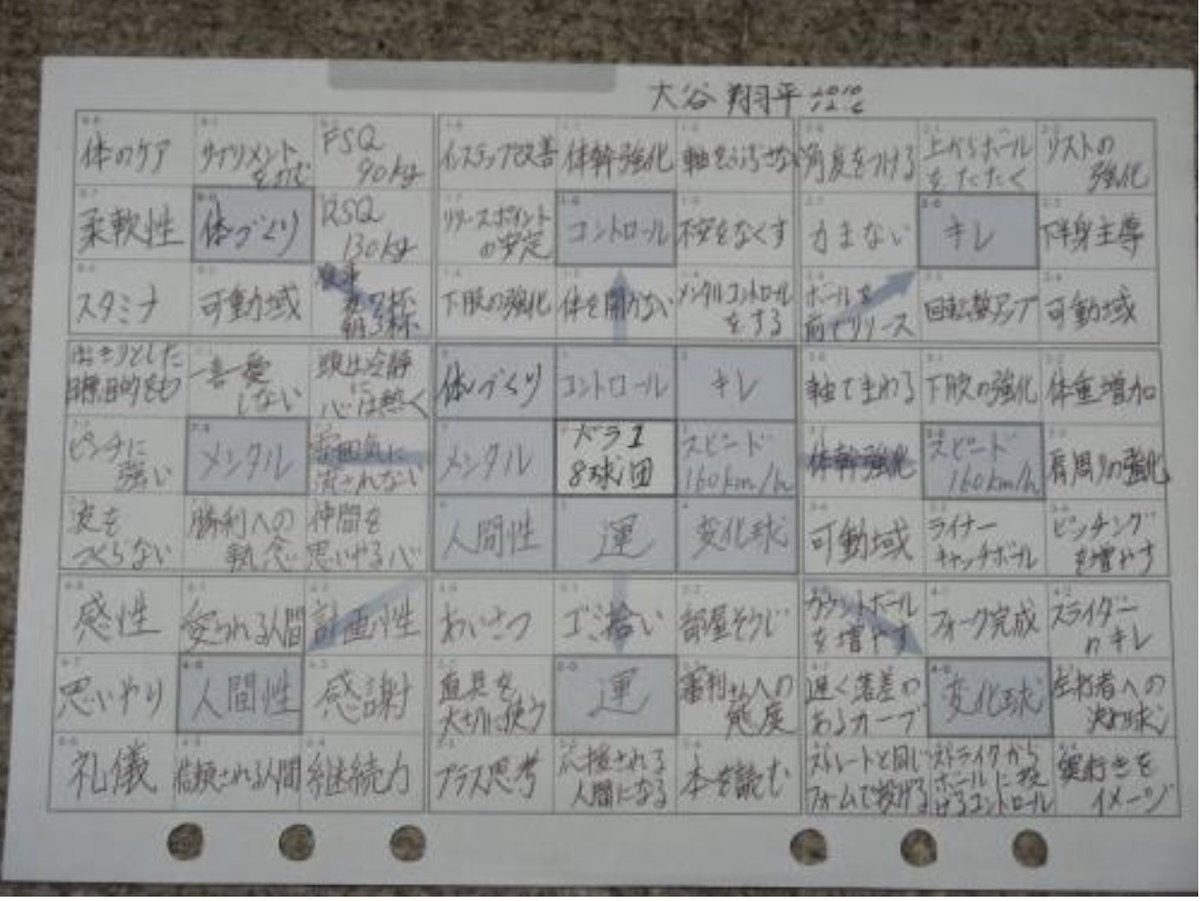 大谷翔平 2010 12 6
体のケア サプリメントをのむ FSQ 90kg インステップ改善 体幹強化 軸をぶらさない 角度をつける 上からボールをたたく リストの強化
柔軟性 体づくり RSQ 130kg リリースポイントの安定 コントロール 不安をなくす 力まない キレ 下半身主導
スタミナ 可動域 夜7杯 朝3杯 下肢の強化 体を開かない メンタルコントロールをする ボールを前でリリース 回転数アップ 可動域
目標目的をもつ 一喜一憂しない 頭は冷静に心は熱く 体づくり コントロール キレ 軸でまわる 下肢の強化 体重増加
ピンチに強い メンタル 雰囲気に流されない メンタル ドラ1 8球団 スピード 160km/h 体幹強化 スピード 160km/h 肩周りの強化
波をつくらない 勝利への執念 仲間を思いやる心 人間性 運 変化球 可動域 ライナーキャッチボール ピッチングを増やす
感性 愛される人間 計画性 あいさつ ゴミ拾い 部屋そうじ カウントボールを増やす フォーク完成 スライダーのキレ
思いやり 人間性 感謝 道具を大切に使う 運 審判さんへの態度 遅く落差のあるカーブ 変化球 左打者への決め球
礼儀 信頼される人間 継続力 プラス思考 応援される人間になる 本を読む ストレートと同じフォームで投げる ストライクからボールに投げるコントロール 奥行きをイメージ